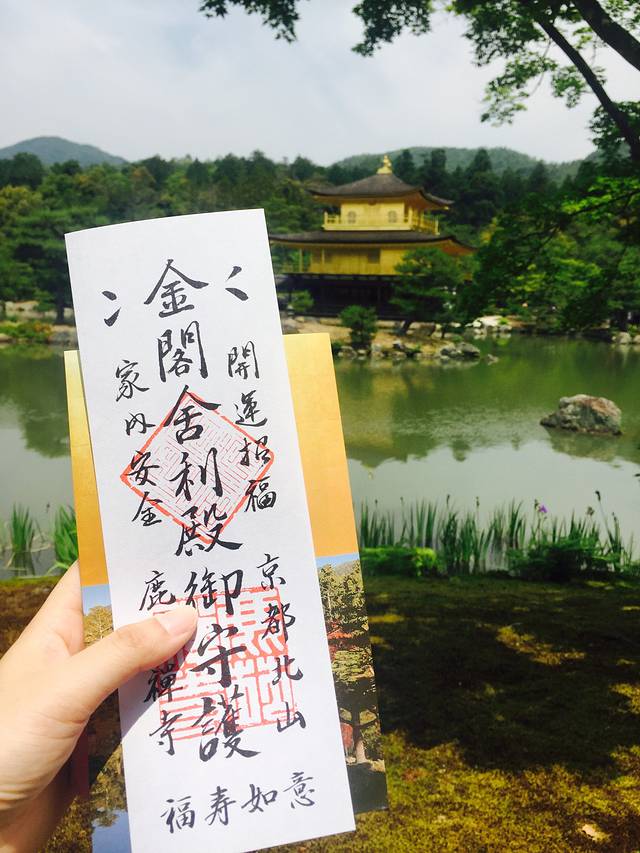 開運招福
京都北山
金閣舎利殿御守護
家内安全
鹿禪寺
福寿如意